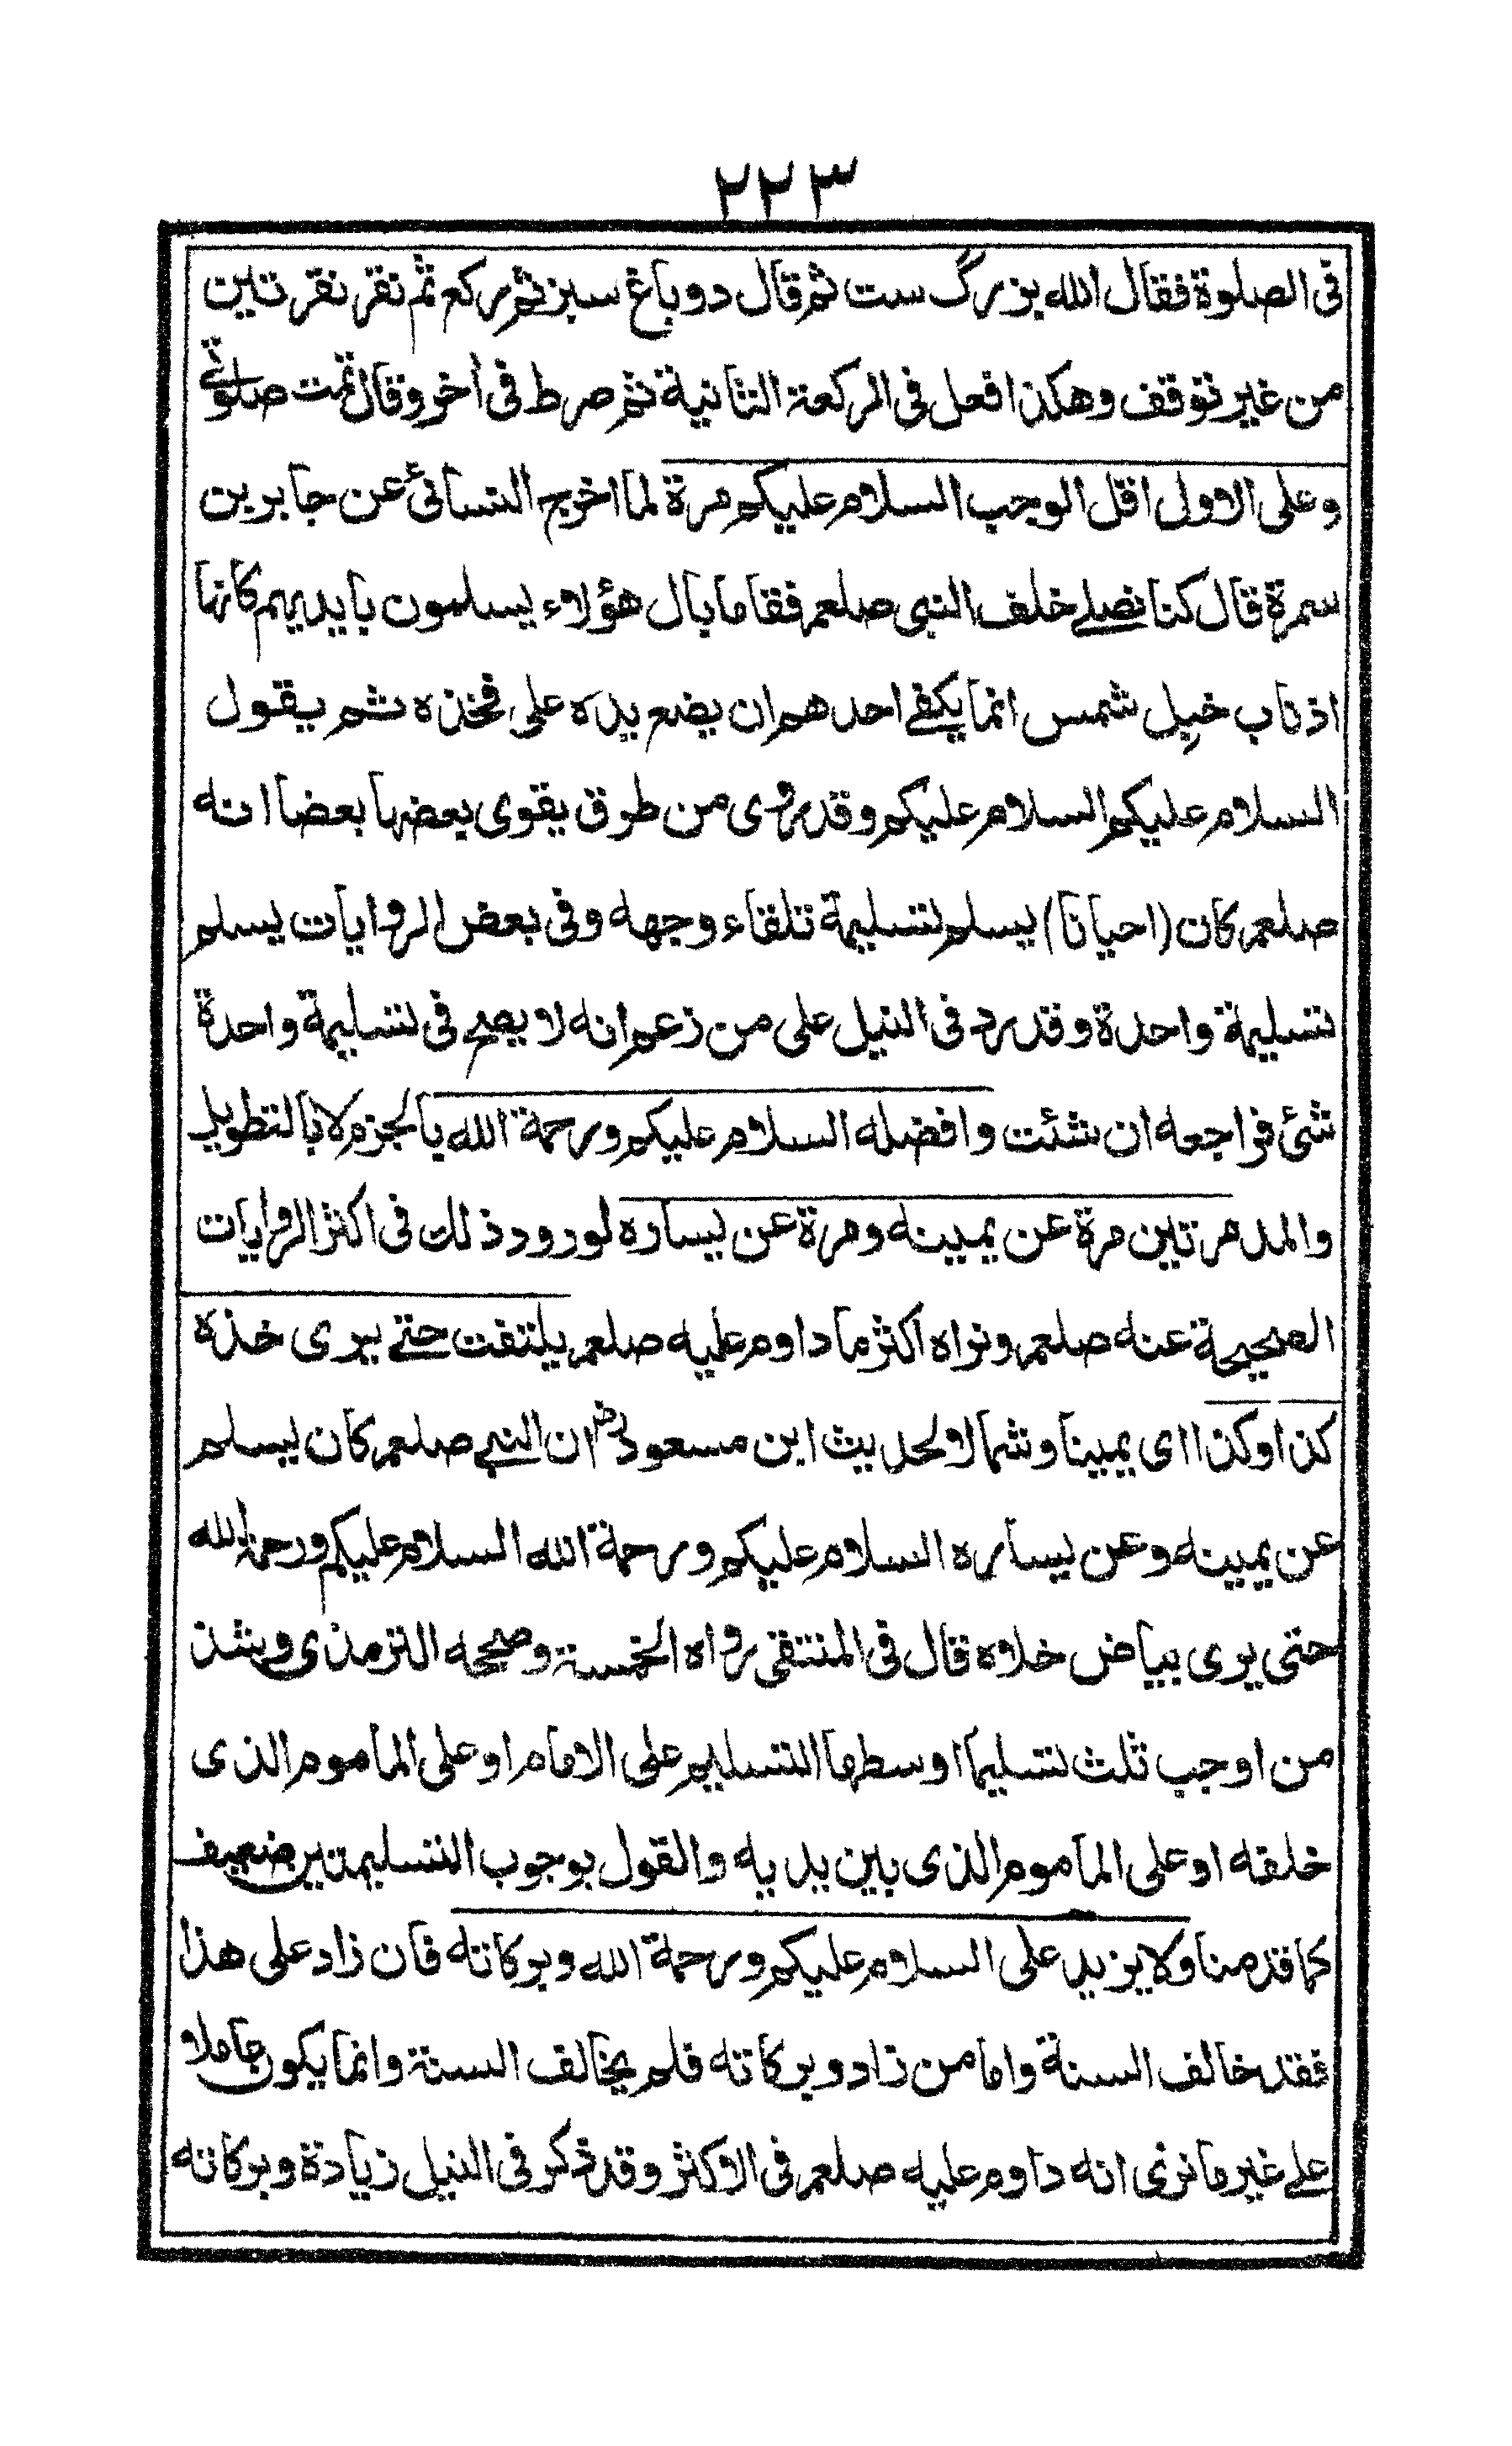 ٢٢٣
فى الصلوة فقال الله بزرگ ست ثم قال دو باغ سبز ثم ركع ثم نقر نقرتين
من غير توقف وهكذا فعل فى الركعة الثانية ثم ضرط فى اخر وقال تمت صلوتى
وعلى الاول اقل الوجب السلام عليكم مرة لما اخرج النسائى عن جابر بن
سمرة قال كنا نصلے خلف النبى صلعم فقا ما بال هؤلاء يسلمون بايديهم كانها
اذناب خيل شمس انما يكفے احدهم ان يضع يده على فخذه ثم يقول
السلام عليكم السلام عليكم وقد روى من طرق يقوى بعضها بعضا انه
صلعم كان (احيانا) يسلم تسليمة تلقاء وجهه وفى بعض الروايات يسلم
تسليمة واحدة وقد رد فى النيل على من زعم انه لا يصح فى تسليمة واحدة
شئ فراجعه ان شئت وافضله السلام عليكم ورحمة الله بالجزم لا بالتطويل
والمد مرتين مرة عن يمينه ومرة عن يساره لورود ذلك فى اكثر الروايات
الصحيحة عنه صلعم ونراه اكثر ما داوم عليه صلعم يلتفت حتے يرى خذه
كذا وكذا اى يمينا وشمالا لحديث ابن مسعودؓ ان النبے صلعم كان يسلم
عن يمينه وعن يساره السلام عليكم ورحمة الله السلام عليكم ورحمة الله
حتى يرى بياض خلاه قال فى المنتقى رواه الخمسة وصححه الترمذى وشذ
من اوجب ثلث تسليما اوسطها التسليم على الامام او على الماموم الذى
خلفه او على الماموم الذى بين يديه والقول بوجوب التسليمتين ضعيف
كما قدمنا ولا يزيد على السلام عليكم ورحمة الله وبركاته فان زاد على هذا
فقد خالف السنة واما من زاد وبركاته فلم يخالف السنة وانما يكون عاملا
علے غير ما نرى انه داوم عليه صلعم فى الاكثر وقد ذكر فى النيل زيادة وبركاته